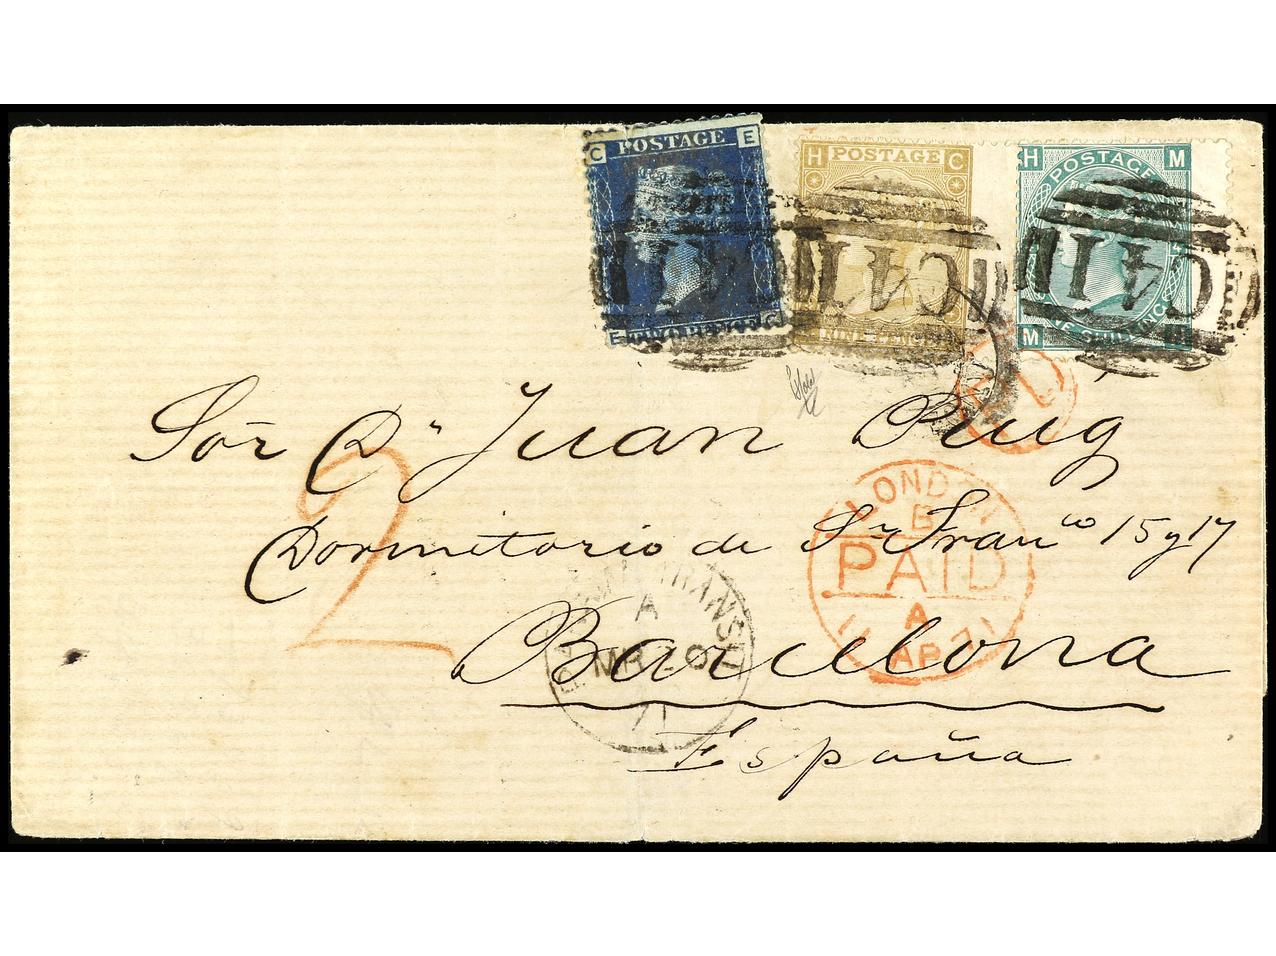 C POSTAGE E
E TWO PENCE C
H POSTAGE C
NINE PENCE
H POSTAGE M
M ONE SHILLING
C41
C41
C41
Sor Dn Juan Puig
Dormitorio de Sn Franco 15 y 17
Barcelona
España
2
LONDON
B
PAID
A
11 AP 71
PANAMA TRANSIT
A
MR 26
71